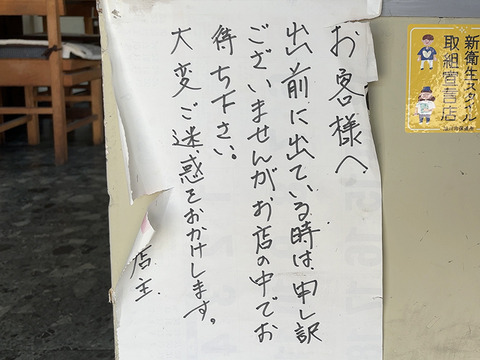 お客様へ
出前に出ている時は、申し訳
ございませんがお店の中でお
待ち下さい。
大変ご迷惑をおかけします。
店主
新衛生スタイル
取組宣言店